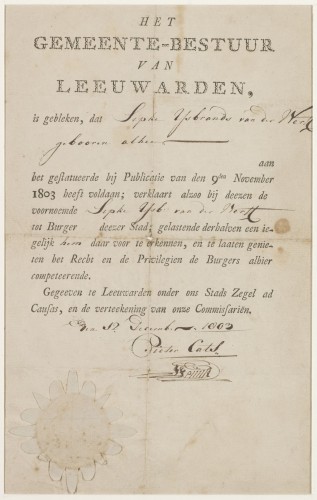 HET
GEMEENTE-BESTUUR
VAN
LEEUWARDEN,
is gebleken, dat Sepke IJsbrands van der
gebooren alhier
aan
het gestatueerde bij Publicatie van den 9den November
1803 heeft voldaan; verklaart alzoo bij deezen de
voornoemde Sepke IJsb van der
tot Burger deezer Stad; gelastende derhalven een ie-
gelijk hem daar voor te erkennen, en te laaten genie-
ten het Recht en de Privilegien de Burgers alhier
competeerende.
Gegeeven te Leeuwarden onder ons Stads Zegel ad
Causas, en de verteekening van onze Commissariën.
Den 12 December 1803
Pieter Cats